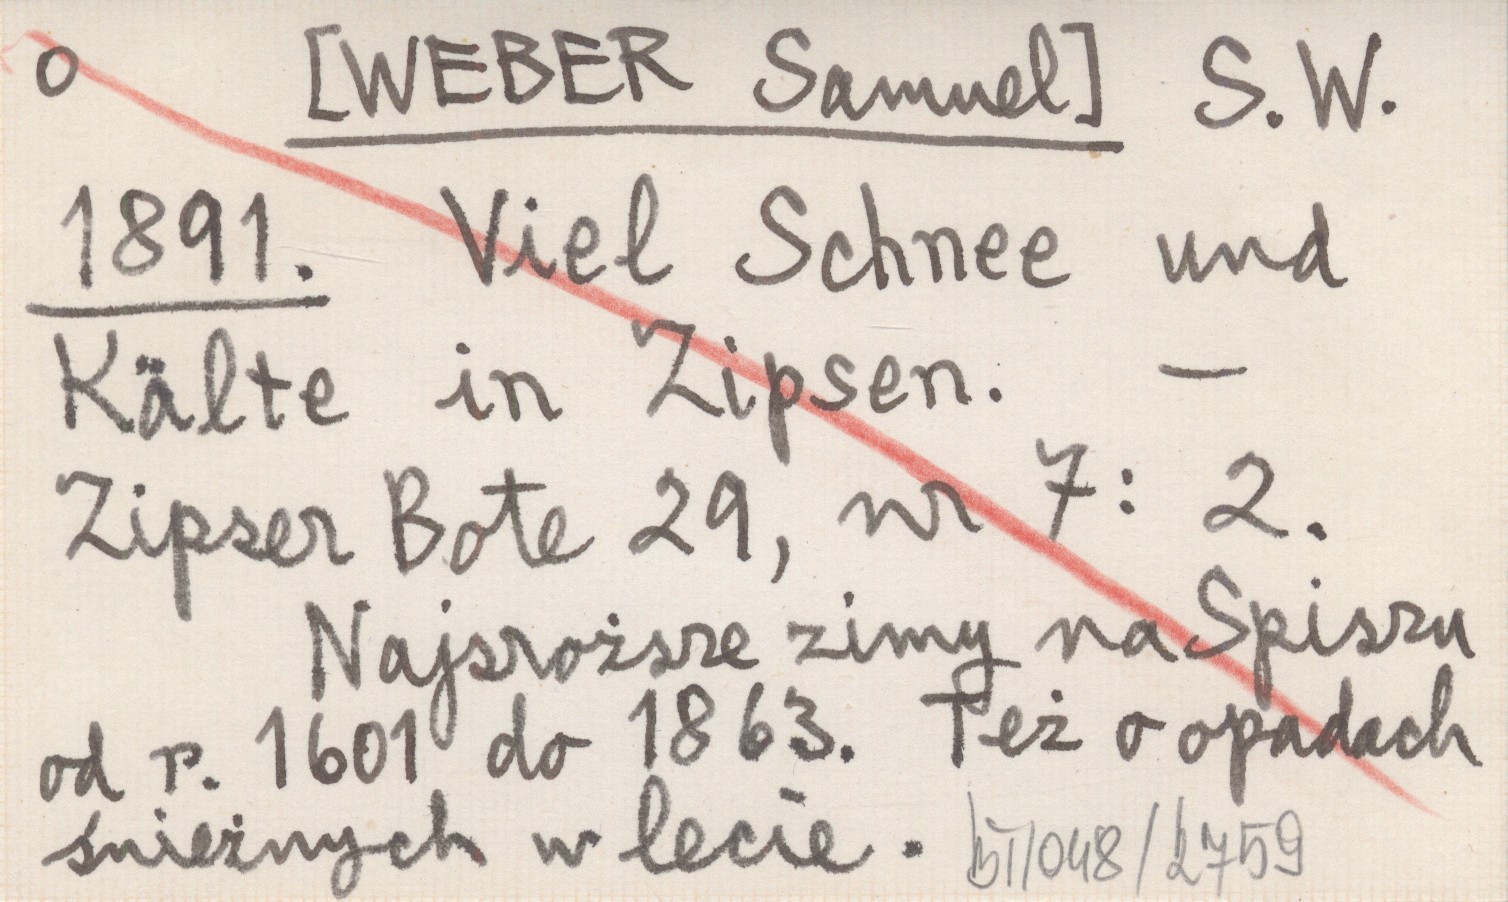 o [WEBER Samuel] S.W.
1891. Viel Schnee und
Kälte in Zipsen. —
Zipser Bote 29, nr 7: 2.
Najsroższe zimy na Spiszu
od r. 1601 do 1863. Też o opadach
śnieżnych w lecie.
/048/2759